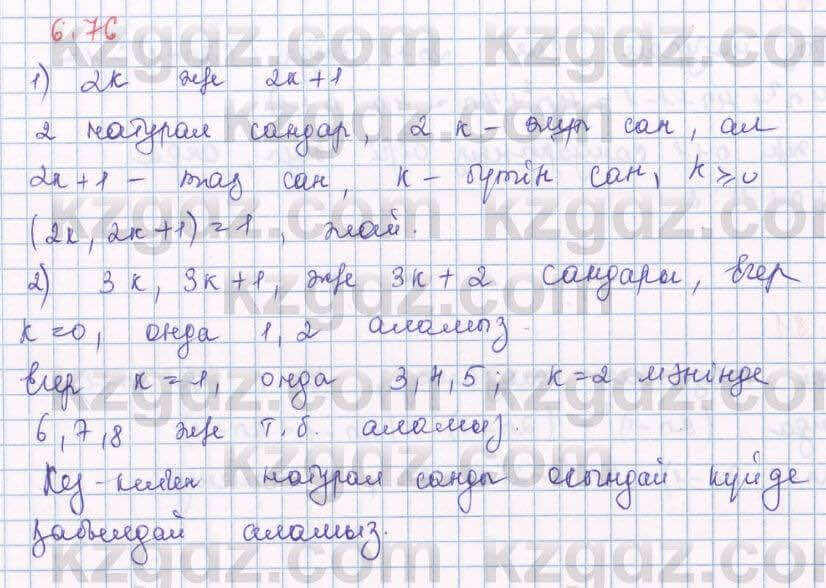 6.76
1) 2k және 2k+1
2 натурал сандар, 2k – жұп сан, ал
2k+1 – тақ сан, k – бүтін сан, k ≥ 0
(2k, 2k+1) = 1, жай.
2) 3k, 3k+1, және 3k+2 сандары, егер
k=0, онда 1, 2 аламыз.
егер k=1, онда 3, 4, 5; k=2 мәнінде
6, 7, 8 және т.б. аламыз.
Кез-келген натурал санды осындай күйде
аламыз.
kzgdz.com